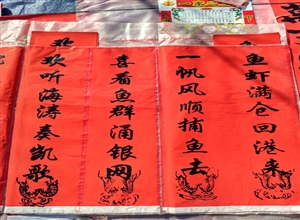 鱼虾满仓回港来
一帆风顺捕鱼去
喜看鱼群涌银网
欢听海涛奏凯歌